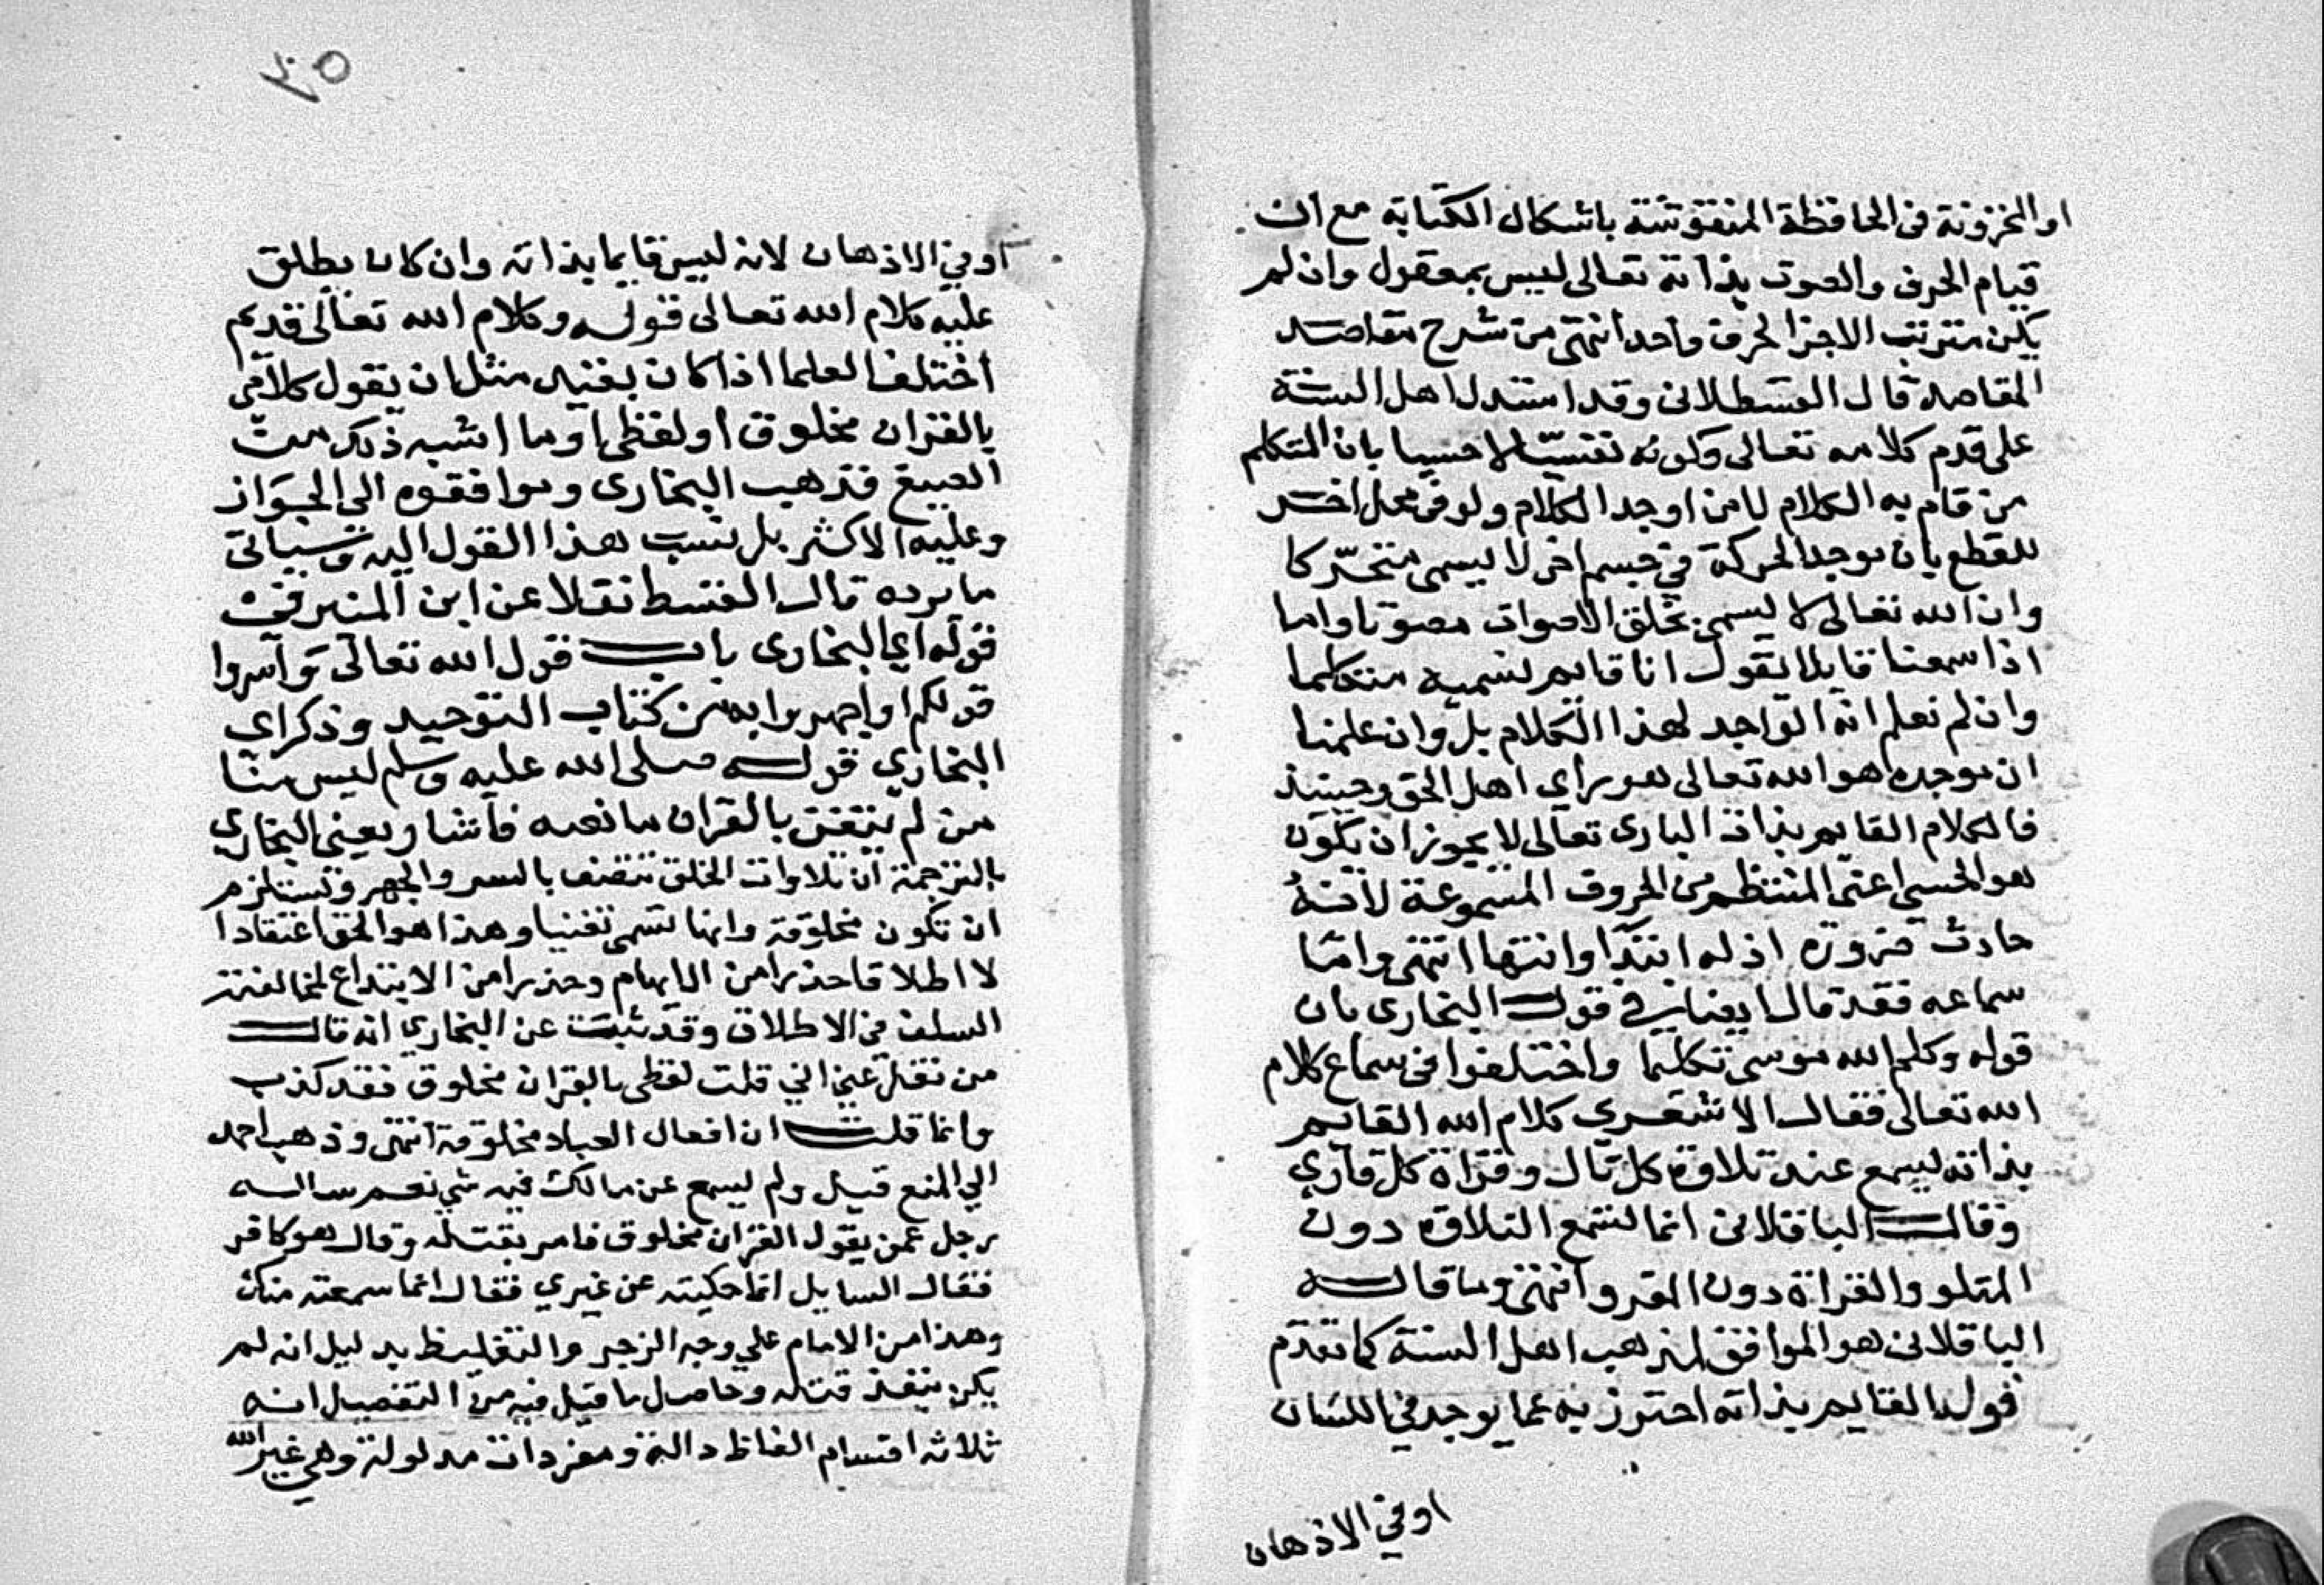 او المخزونة في الحافظة المنقوشة باشكال الكتابة مع ان
قيام الحرف والصوت بذاته تعالى ليس بمعقول وان لم
يكن مترتب الاجزا لحرف واحد انتهى من شرح مقاصد
المقاصد قال القسطلاني وقد استدل اهل السنة
على قدم كلامه تعالى وكونه نفسيا لا حسيا بان المتكلم
من قام به الكلام لا من اوجد الكلام ولو في محل اخر
للقطع بان موجد الحركة في جسم اخر لا يسمى متحركا
وان الله تعالى لا يسمى بخلق الاصوات مصوتا واما
اذا سمعنا قايلا يقول انا قايم نسميه متكلما
وان لم نعلم انه الواجد لهذا الكلام بل وان علمنا
ان موجده هو الله تعالى هو راي اهل الحق وحينيذ
فالكلام القايم بذات البارى تعالى لا يجوز ان يكون
هو الحسي اعنى المنتظم من الحروف المسموعة لانه
حادث ضرورة اذ له ابتدا وانتها انتهى واما
سماعه فقد قال ايضا في قول البخارى باب
قوله وكلم الله موسى تكليما واختلفوا في سماع كلام
الله تعالى فقال الاشعري كلام الله القايم
بذاته يسمع عند تلاوة كل تال وقراة كل قاري
وقال الباقلانى انما تسمع التلاوة دون
المتلو والقراة دون المقرو انتهى وما قاله
الباقلانى هو الموافق لمذهب اهل السنة كما تقدم
قوله القايم بذاته احترز به عما يوجد في اللسان
او في الاذهان
٢٠٥
او في الاذهان لانه ليس قايما بذاته وان كان يطلق
عليه كلام الله تعالى قوله وكلام الله تعالى قديم
اختلف العلما اذا كان بغنيه مثل ان يقول كلامى
بالقران مخلوق او لفظى او ما اشبه ذلك من
الصيغ فذهب البخارى وموافقوه الى الجواز
وعليه الاكثر بل نسب هذا القول اليه وسياتى
ما يرده قال القسط نقلا عن ابن المنير في
قوله اي البخارى باب قول الله تعالى واسروا
قولكم او اجهروا به من كتاب التوحيد وذكر اى
البخاري قوله صلى الله عليه وسلم ليس منا
من لم يتغن بالقران ما نصه فاشار يعنى البخاري
بالترجمة ان تلاوات الخلق تتصف بالسر والجهر وتستلزم
ان تكون مخلوقة وانها تسمى تغنيا وهذا هو الحق اعتقادا
لا اطلاقا حذرا من الايهام وحذرا من الابتداع لمخالفته
السلف في الاطلاق وقد ثبت عن البخاري انه قال
من نقل عني اني قلت لفظى بالقران مخلوق فقد كذب
وانما قلت ان افعال العباد مخلوقة انتهى وذهب احمد
الي المنع قيل ولم يسمع عن مالك فيه شي نعم ساله
رجل عمن يقول القران مخلوق فامر بقتله وقال هو كافر
فقال السايل انما حكيته عن غيري فقال انما سمعته منك
وهذا من الامام علي وجه الزجر والتغليظ بدليل انه لم
يكن ينفذ قتله وحاصل ما قيل فيه من التفصيل انه
ثلاثه اقسام الفاظ دالة ومفردات مدلولة وهي غير الله